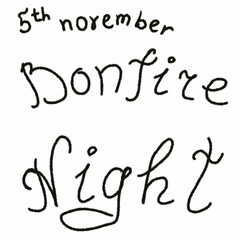 5th november
Bonfire
Night